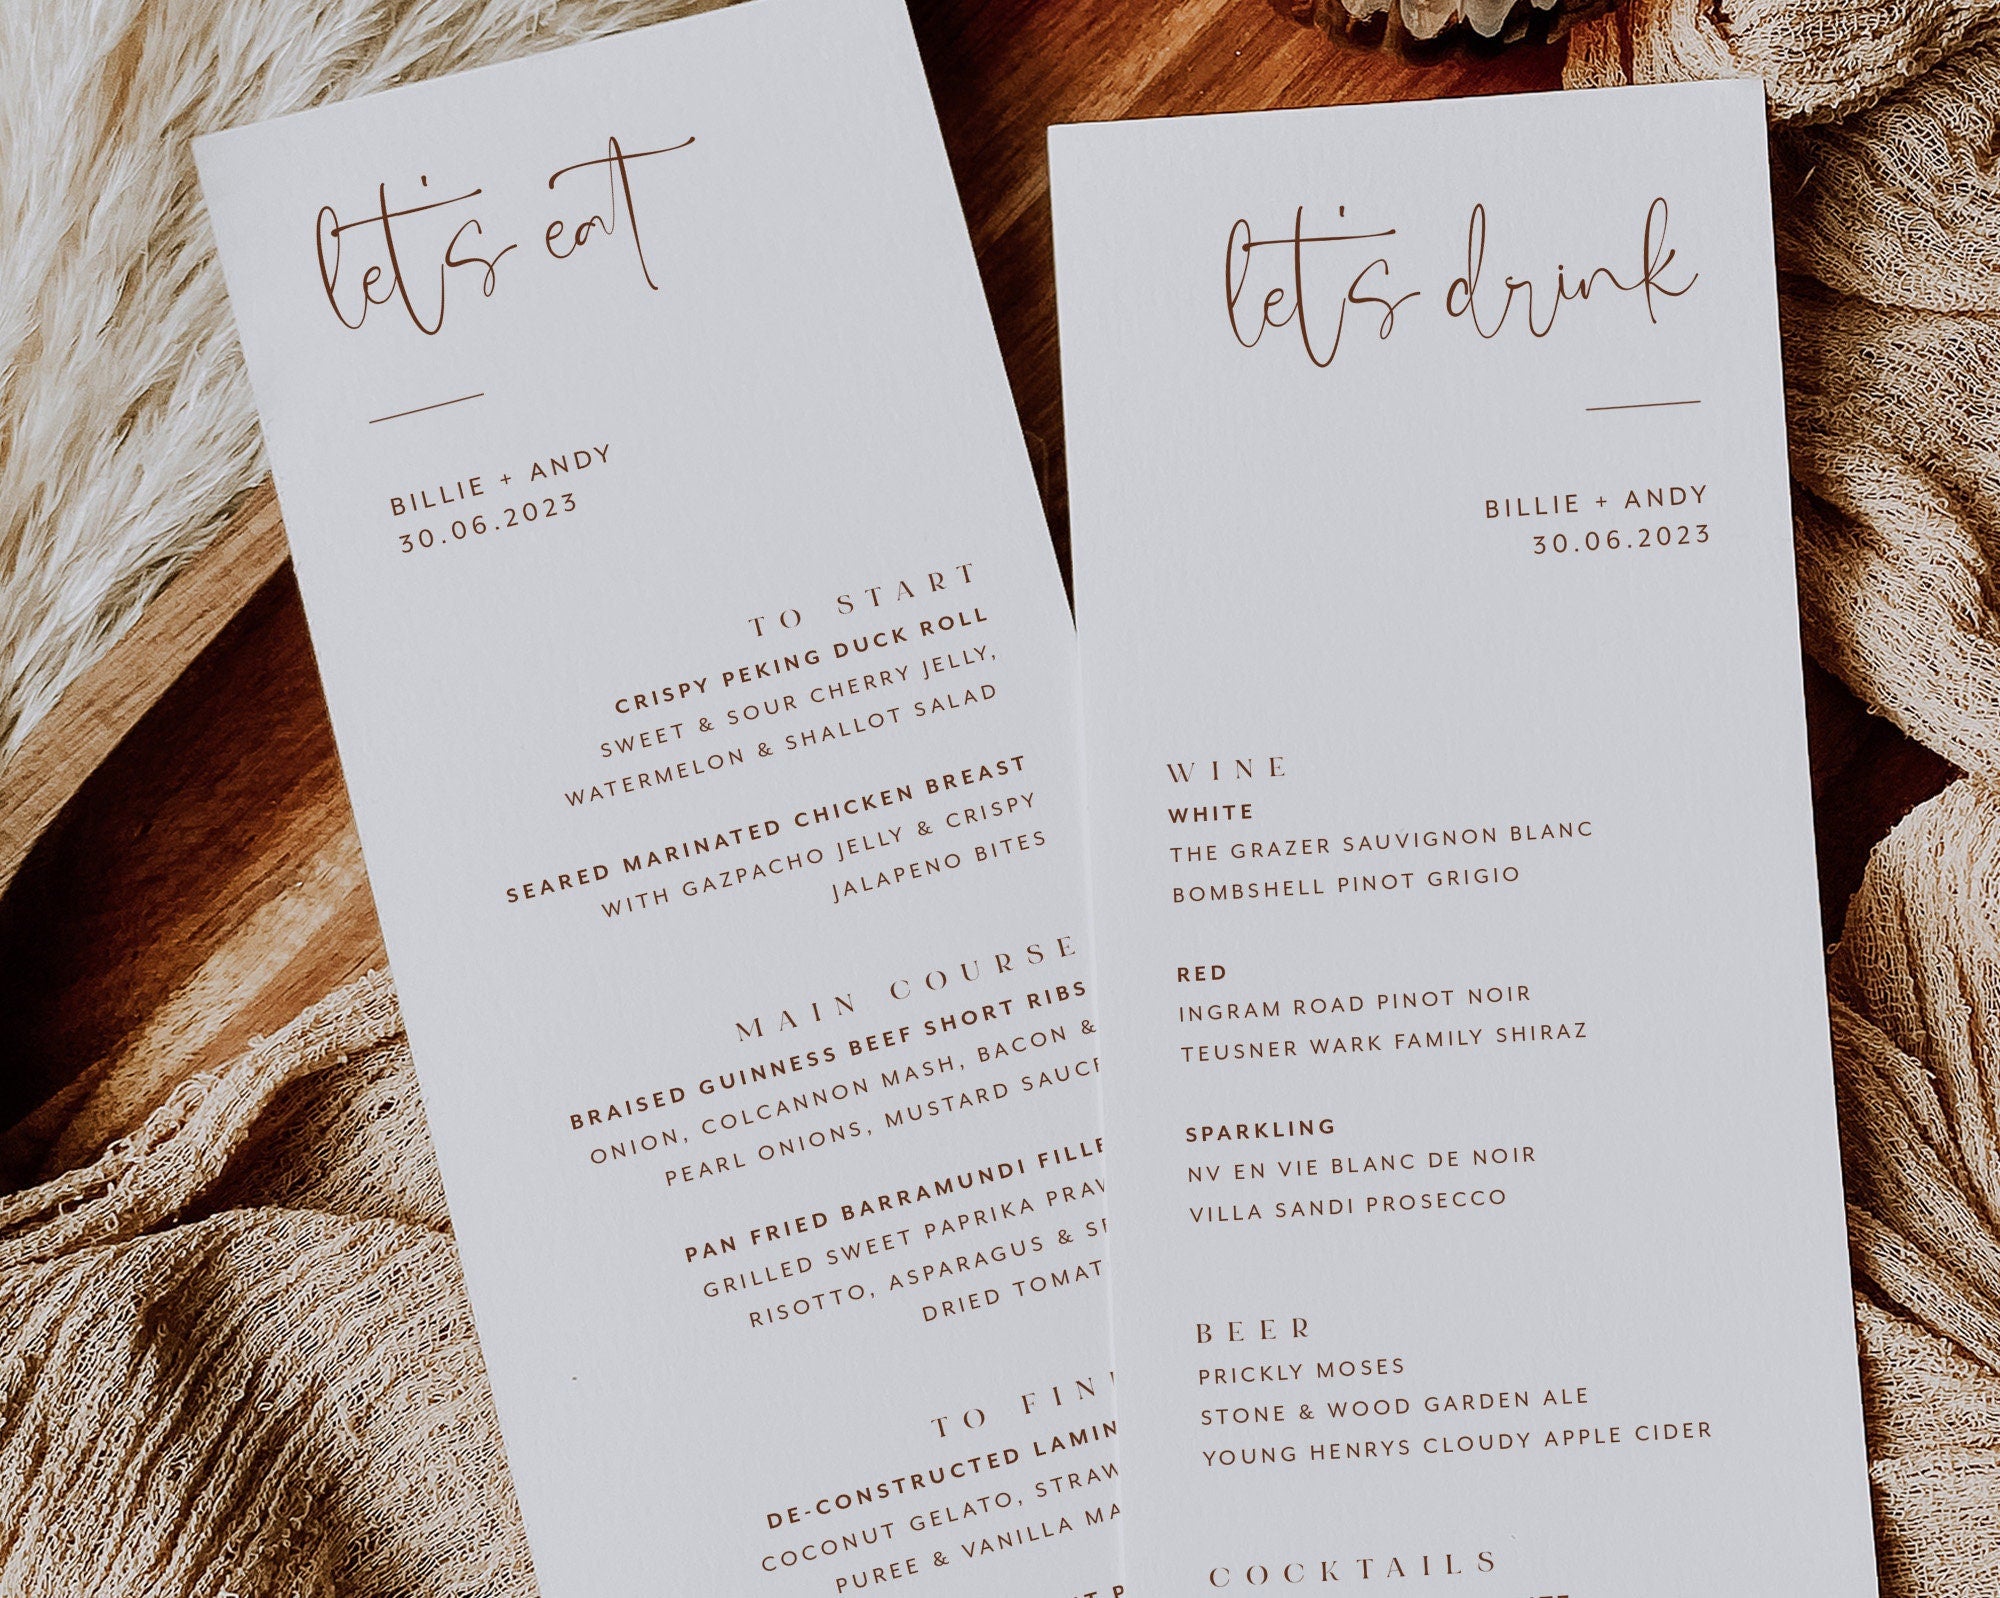 let's eat
BILLIE + ANDY
30.06.2023
TO START
CRISPY PEKING DUCK ROLL
SWEET & SOUR CHERRY JELLY,
WATERMELON & SHALLOT SALAD
SEARED MARINATED CHICKEN BREAST
WITH GAZPACHO JELLY & CRISPY
JALAPENO BITES
MAIN COURSE
BRAISED GUINNESS BEEF SHORT RIBS
ONION, COLCANNON MASH, BACON &
PEARL ONIONS, MUSTARD SAUCE
PAN FRIED BARRAMUNDI
GRILLED SWEET PAPRIKA
RISOTTO, ASPARAGUS &
DRIED
TO
DE-CONSTRUCTED
COCONUT GELATO,
PUREE & VANILLA
let's drink
BILLIE + ANDY
30.06.2023
WINE
WHITE
THE GRAZER SAUVIGNON BLANC
BOMBSHELL PINOT GRIGIO
RED
INGRAM ROAD PINOT NOIR
TEUSNER WARK FAMILY SHIRAZ
SPARKLING
NV EN VIE BLANC DE NOIR
VILLA SANDI PROSECCO
BEER
PRICKLY MOSES
STONE & WOOD GARDEN ALE
YOUNG HENRYS CLOUDY APPLE CIDER
COCKTAILS